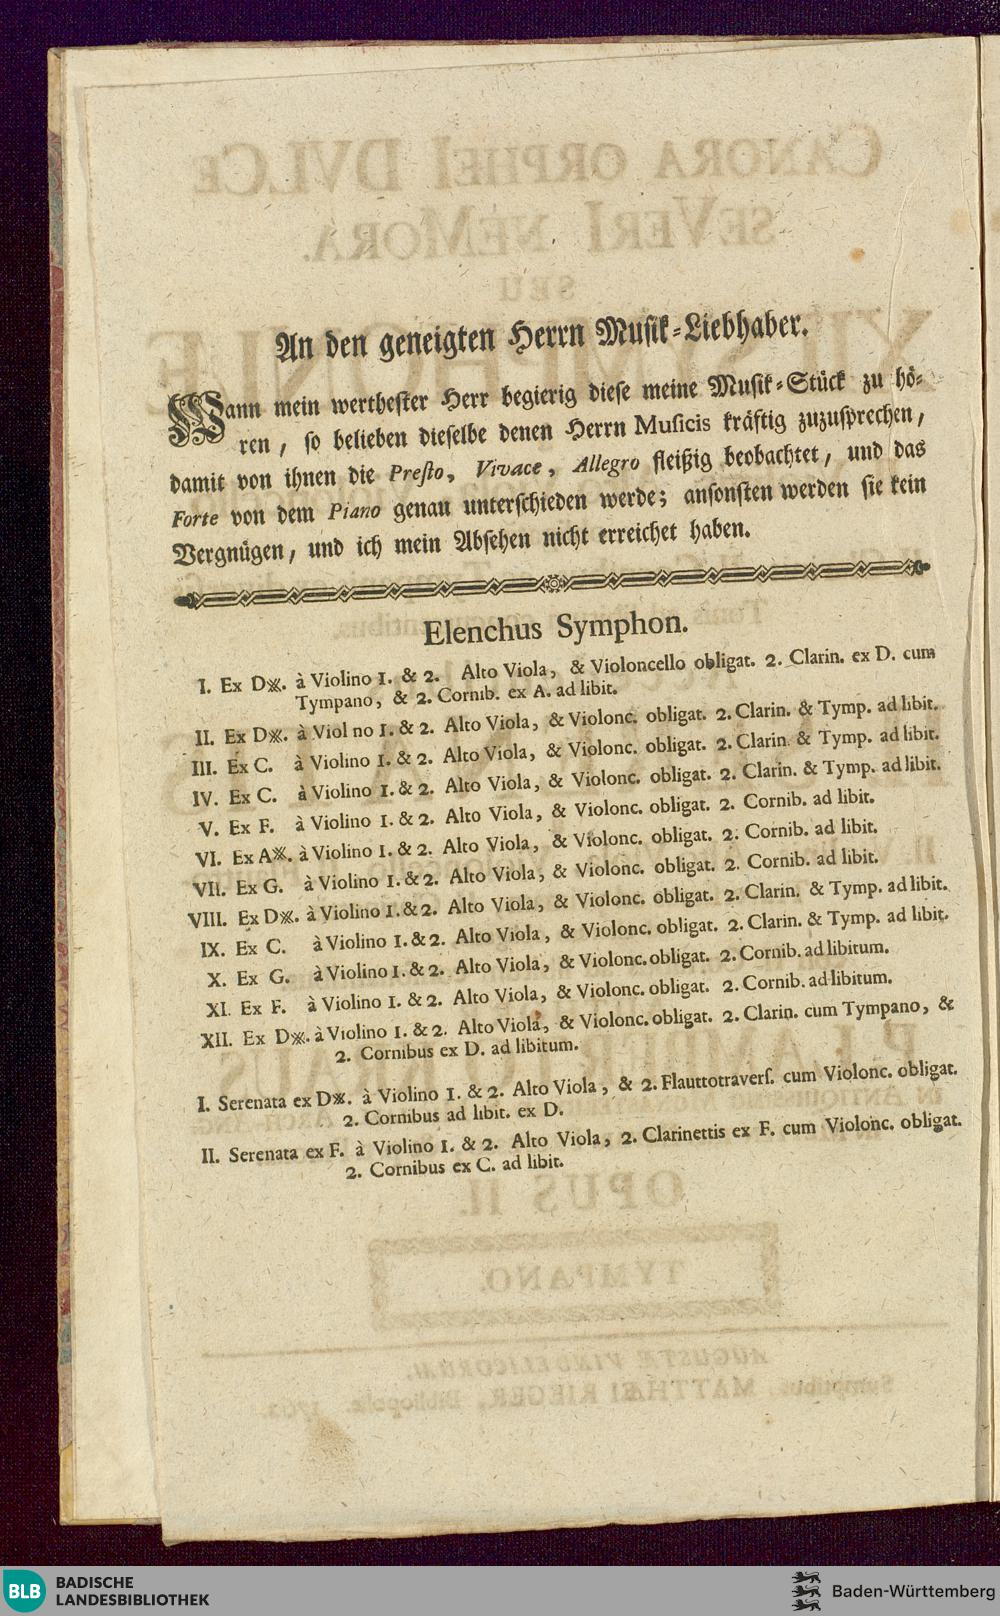 An den geneigten Herrn Musik-Liebhaber.
Wann mein werthester Herr begierig diese meine Musik-Stück zu hö-
ren, so belieben dieselbe denen Herrn Musicis kräftig zuzusprechen,
damit von ihnen die Presto, Vivace, Allegro fleißig beobachtet, und das
Forte von dem Piano genau unterschieden werde; ansonsten werden sie kein
Vergnügen, und ich mein Absehen nicht erreichet haben.
Elenchus Symphon.
I. Ex D※. à Violino 1. & 2. Alto Viola, & Violoncello obligat. 2. Clarin. ex D. cum
Tympano, & 2. Cornib. ex A. ad libit.
II. Ex D※. à Viol no 1. & 2. Alto Viola, & Violonc. obligat. 2. Clarin. & Tymp. ad libit.
III. Ex C. à Violino 1. & 2. Alto Viola, & Violonc. obligat. 2. Clarin. & Tymp. ad libit.
IV. Ex C. à Violino 1. & 2. Alto Viola, & Violonc. obligat. 2. Clarin. & Tymp. ad libit.
V. Ex F. à Violino 1. & 2. Alto Viola, & Violonc. obligat. 2. Cornib. ad libit.
VI. Ex A※. à Violino 1. & 2. Alto Viola, & Violonc. obligat. 2. Cornib. ad libit.
VII. Ex G. à Violino 1. & 2. Alto Viola, & Violonc. obligat. 2. Cornib. ad libit.
VIII. Ex D※. à Violino 1. & 2. Alto Viola, & Violonc. obligat. 2. Clarin. & Tymp. ad libit.
IX. Ex C. à Violino 1. & 2. Alto Viola, & Violonc. obligat. 2. Clarin. & Tymp. ad libit.
X. Ex G. à Violino 1. & 2. Alto Viola, & Violonc. obligat. 2. Cornib. ad libitum.
XI. Ex F. à Violino 1. & 2. Alto Viola, & Violonc. obligat. 2. Cornib. ad libitum.
XII. Ex D※. à Violino 1. & 2. Alto Viola, & Violonc. obligat. 2. Clarin. cum Tympano, &
2. Cornibus ex D. ad libitum.
I. Serenata ex D※. à Violino 1. & 2. Alto Viola, & 2. Flauttotravers. cum Violonc. obligat.
2. Cornibus ad libit. ex D.
II. Serenata ex F. à Violino 1. & 2. Alto Viola, 2. Clarinettis ex F. cum Violonc. obligat.
2. Cornibus ex C. ad libit.
BLB BADISCHE
LANDESBIBLIOTHEK
Baden-Württemberg